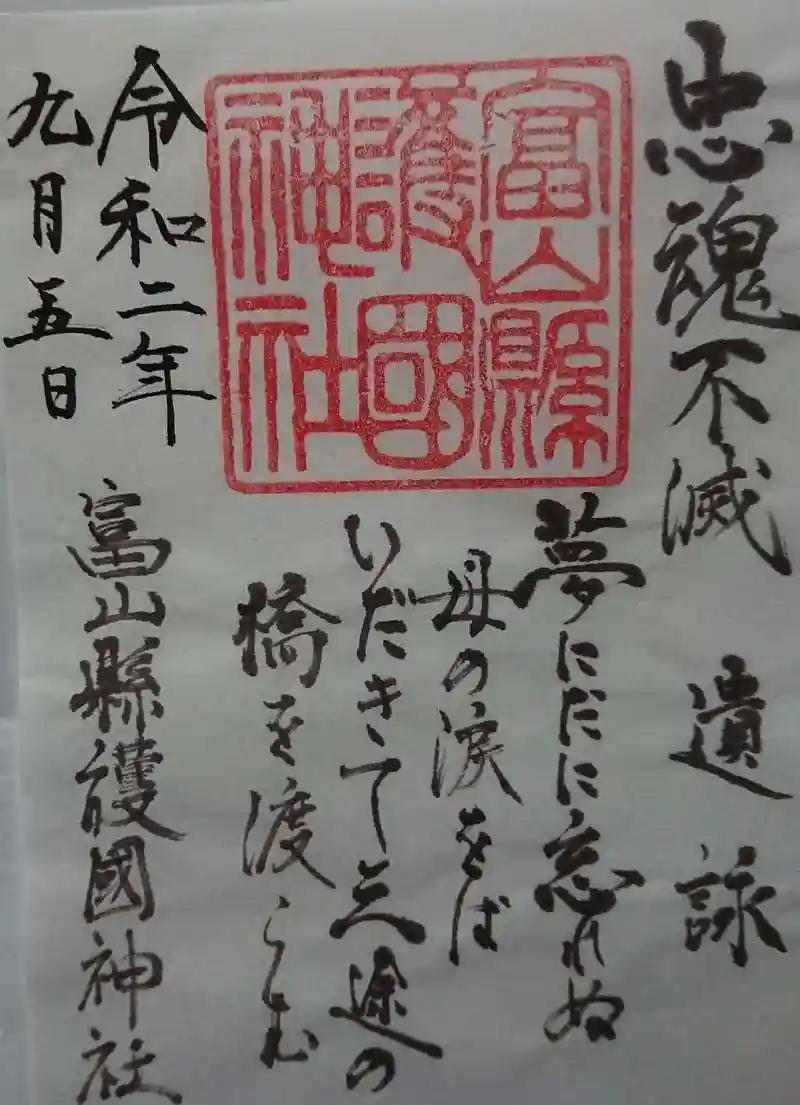 忠魂不滅 遺詠
富山縣
護國
神社
夢にだに忘れぬ
母の涙をば
いだきて三途の
橋を渡らむ
令和二年
九月五日
富山縣護國神社